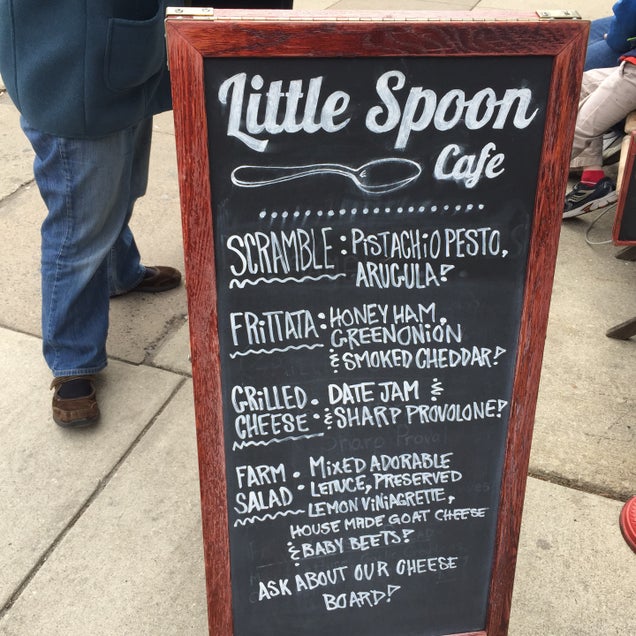 Little Spoon
Cafe
SCRAMBLE: PISTACHIO PESTO,
ARUGULA!
FRITTATA: HONEY HAM,
GREEN ONION
& SMOKED CHEDDAR!
GRILLED DATE JAM &
CHEESE: & SHARP PROVOLONE!
FARM MIXED ADORABLE
SALAD: LETTUCE, PRESERVED
LEMON VINIAGRETTE,
HOUSE MADE GOAT CHEESE
& BABY BEETS!
ASK ABOUT OUR CHEESE
BOARD!